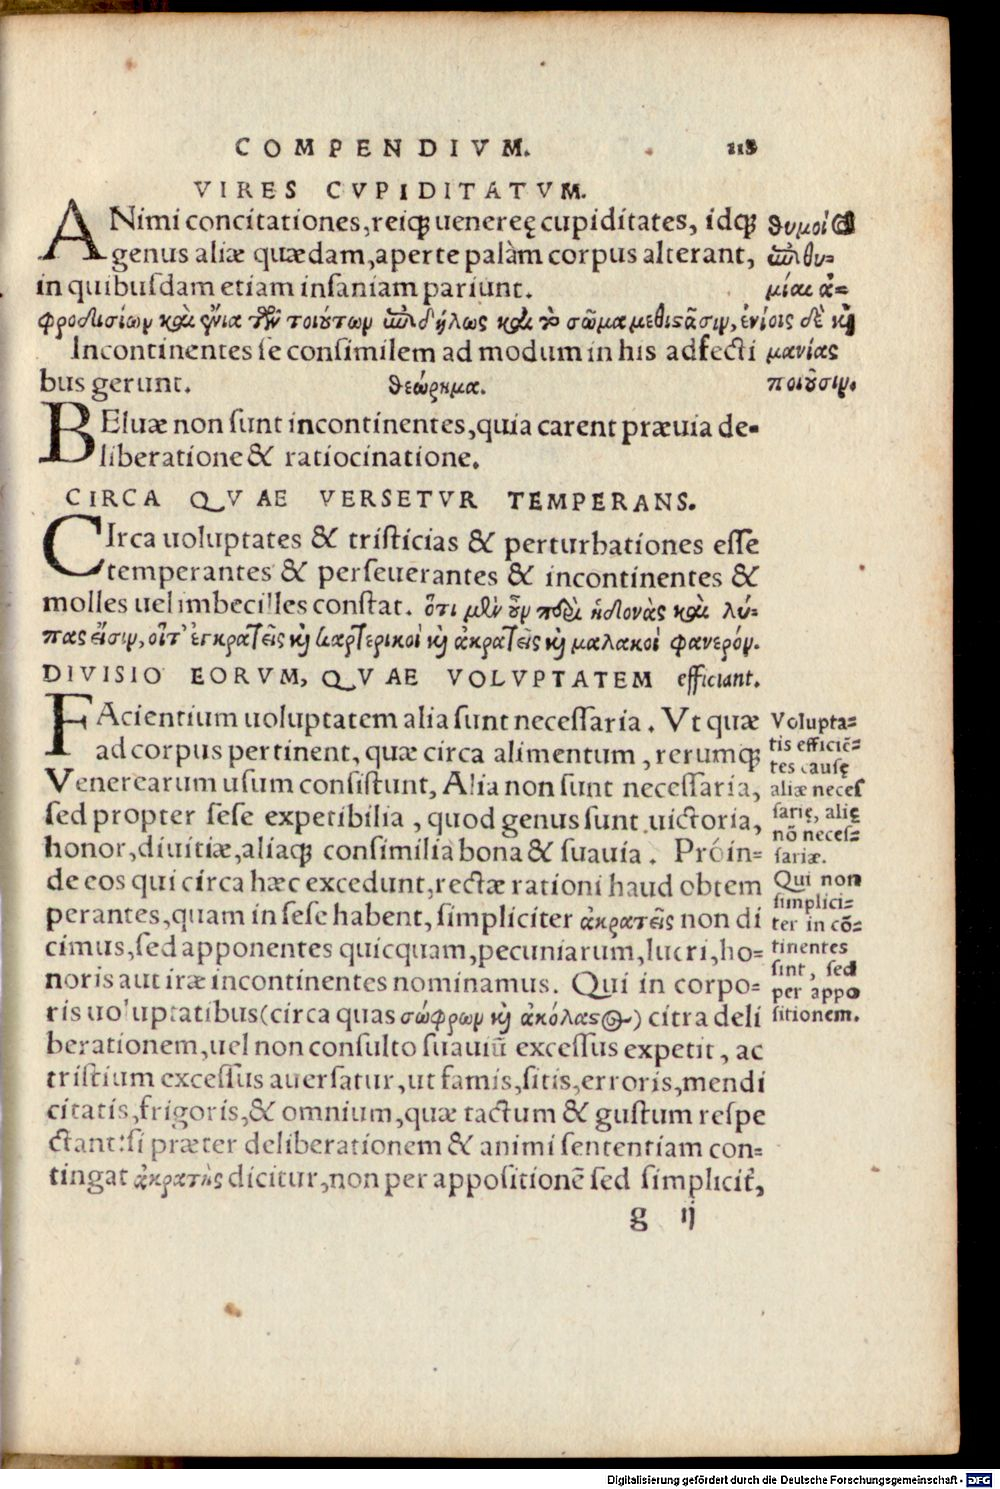 COMPENDIVM. 118
VIRES CVPIDITATVM.
ANimi concitationes, reiq; uenereę cupiditates, idq;
genus aliæ quædam, aperte palàm corpus alterant,
in quibusdam etiam insaniam pariunt.
θυμοὶ καὶ
ἐπιθυ-
μίαι ἀ-
φροδισίων καὶ ἔνια τῶν τοιούτων ἐπιδήλως καὶ τὸ σῶμα μεθιστᾶσιν, ἐνίοις δὲ καὶ
μανίας
ποιοῦσιν.
Incontinentes se consimilem ad modum in his adfecti
bus gerunt. θεώρημα.
BEluæ non sunt incontinentes, quia carent præuia de-
liberatione & ratiocinatione.
CIRCA QVAE VERSETVR TEMPERANS.
CIrca uoluptates & tristicias & perturbationes esse
temperantes & perseuerantes & incontinentes &
molles uel imbecilles constat. ὅτι μὲν οὖν περὶ ἡδονὰς καὶ λύ-
πας εἴσιν, οἵτ' ἐγκρατεῖς καὶ καρτερικοὶ καὶ ἀκρατεῖς καὶ μαλακοὶ φανερόν.
DIVISIO EORVM, QVAE VOLVPTATEM efficiant.
FAcientium uoluptatem alia sunt necessaria. Vt quæ
ad corpus pertinent, quæ circa alimentum, rerumq;
Venerearum usum consistunt, Alia non sunt necessaria,
sed propter sese expetibilia, quod genus sunt uictoria,
honor, diuitiæ, aliaq; consimilia bona & suauia. Próin-
de eos qui circa hæc excedunt, rectæ rationi haud obtem
perantes, quam in sese habent, simpliciter ἀκρατεῖς non di
cimus, sed apponentes quicquam, pecuniarum, lucri, ho-
noris aut iræ incontinentes nominamus. Qui in corpo-
ris uoluptatibus (circa quas σώφρων καὶ ἀκόλαστος) citra deli
berationem, uel non consulto suauiū excessus expetit, ac
tristium excessus auersatur, ut famis, sitis, erroris, mendi
citatis, frigoris, & omnium, quæ tactum & gustum respe
ctant: si præter deliberationem & animi sententiam con-
tingat ἀκρατὴς dicitur, non per appositionē sed simplicit̃,
Volupta-
tis efficiē-
tes causę
aliæ neces
sarię, alię
nō neces-
sariæ.
Qui non
simplici-
ter in cō-
tinentes
sint, sed
per appo
sitionem.
g ij
Digitalisierung gefördert durch die Deutsche Forschungsgemeinschaft - DFG